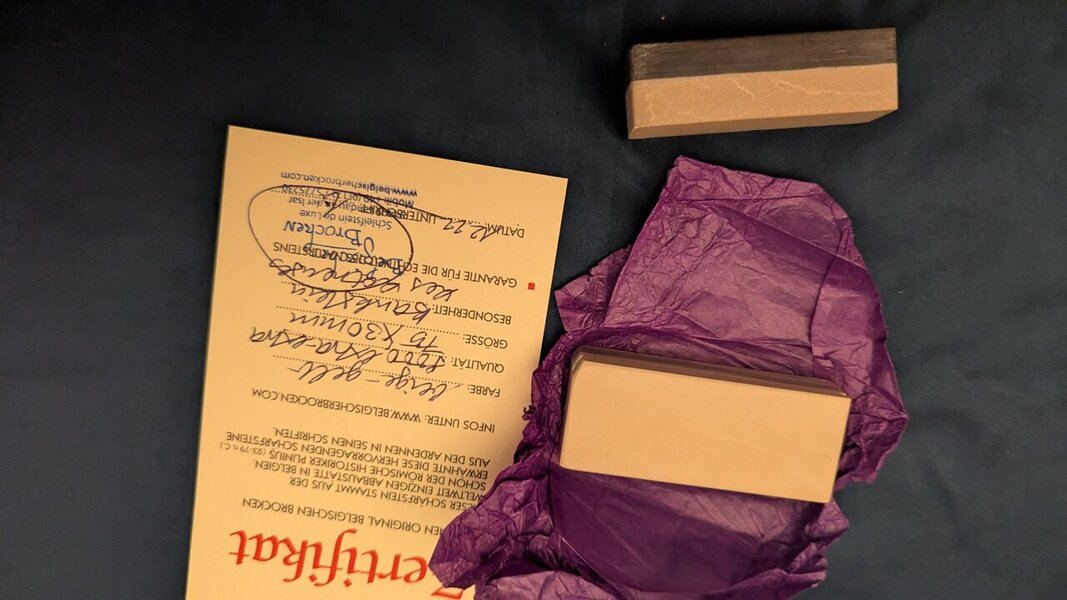 Zertifikat
ORIGINAL BELGISCHEN BROCKEN
SCHÄRFSTEIN STAMMT AUS DER
WELTWEIT EINZIGEN ABBAUSTÄTTE IN BELGIEN.
SCHON DER RÖMISCHE HISTORIKER PLINIUS (23-79 n.C.)
ERWÄHNTE DIESE HERVORRAGENDEN SCHÄRFSTEINE
AUS DEN ARDENNEN IN SEINEN SCHRIFTEN.
INFOS UNTER: WWW.BELGISCHERBROCKEN.COM
FARBE: beige-gelb
QUALITÄT: 8000 extra-extra
GRÖSSE: 75 x 30 mm
BESONDERHEIT: Bankstein
des
GARANTIE FÜR DIE
Brocken
Schleifstein de Luxe
Landau an der Isar
DATUM: 12.22 UNTERSCHRIFT:
Mobil
www.belgischerbrocken.com